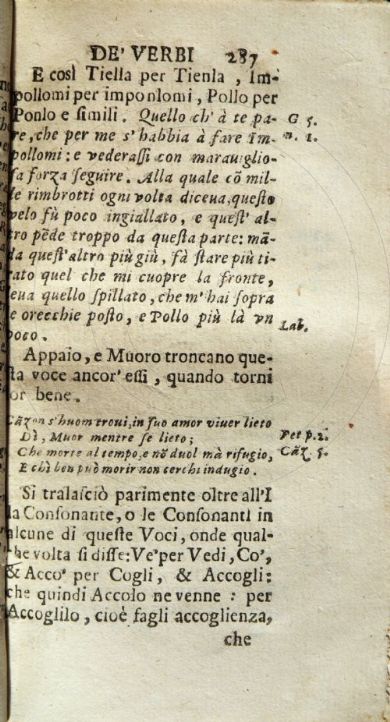 DE' VERBI 287
E così Tiella per Tienla, Im-
pollomi per imponlomi, Pollo per
Ponlo e simili. Quello ch'à te pa-
re, che per me s'habbia à fare Im-
pollomi: e vederassi con marauiglio-
sa forza seguire. Alla quale cõ mil-
le rimbrotti ogni volta diceua, questo
velo fù poco ingiallato, e quest' al-
tro pẽde troppo da questa parte: mã-
da quest'altro più giù, fà stare più ti-
rato quel che mi cuopre la fronte,
leua quello spillato, che m'hai sopra
le orecchie posto, e Pollo più là vn
poco.
G 5.
n. 1.
Lab.
Appaio, e Muoro troncano que-
sta voce ancor' essi, quando torni
lor bene.
Cãzon s'huom troui, in suo amor viuer lieto
Dì, Muor mentre se lieto;
Che morte al tempo, e nõ duol mà rifugio,
E chi ben può morir non cerchi indugio.
Pet p. 2.
Cãz. 5.
Si tralasciò parimente oltre all'I
la Consonante, o le Consonanti in
alcune di queste Voci, onde qual-
che volta si disse: Ve' per Vedi, Co',
& Acco' per Cogli, & Accogli:
che quindi Accolo ne venne : per
Accoglilo, cioè fagli accoglienza,
che